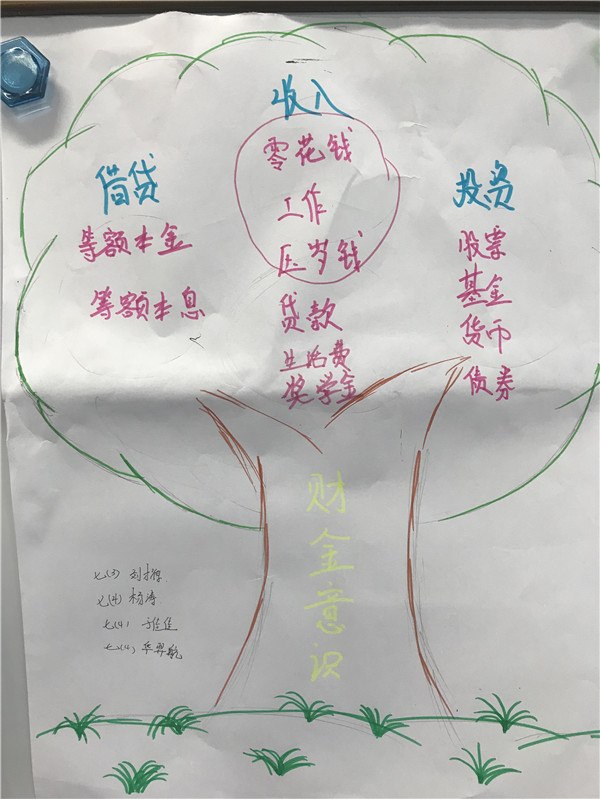 收入
零花钱
工作
压岁钱
贷款
生活费
奖学金
借贷
等额本金
等额本息
投资
股票
基金
货币
债券
财金意识
七(3)
七(4) 杨涛
七(4) 方佳佳
七(4) 华羿航